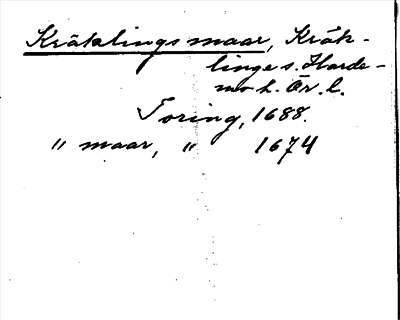 Kräklings maar, Kräk-
linge s. Harde-
mo h. Ör. l.
Toring, 1688.
" maar, " 1674